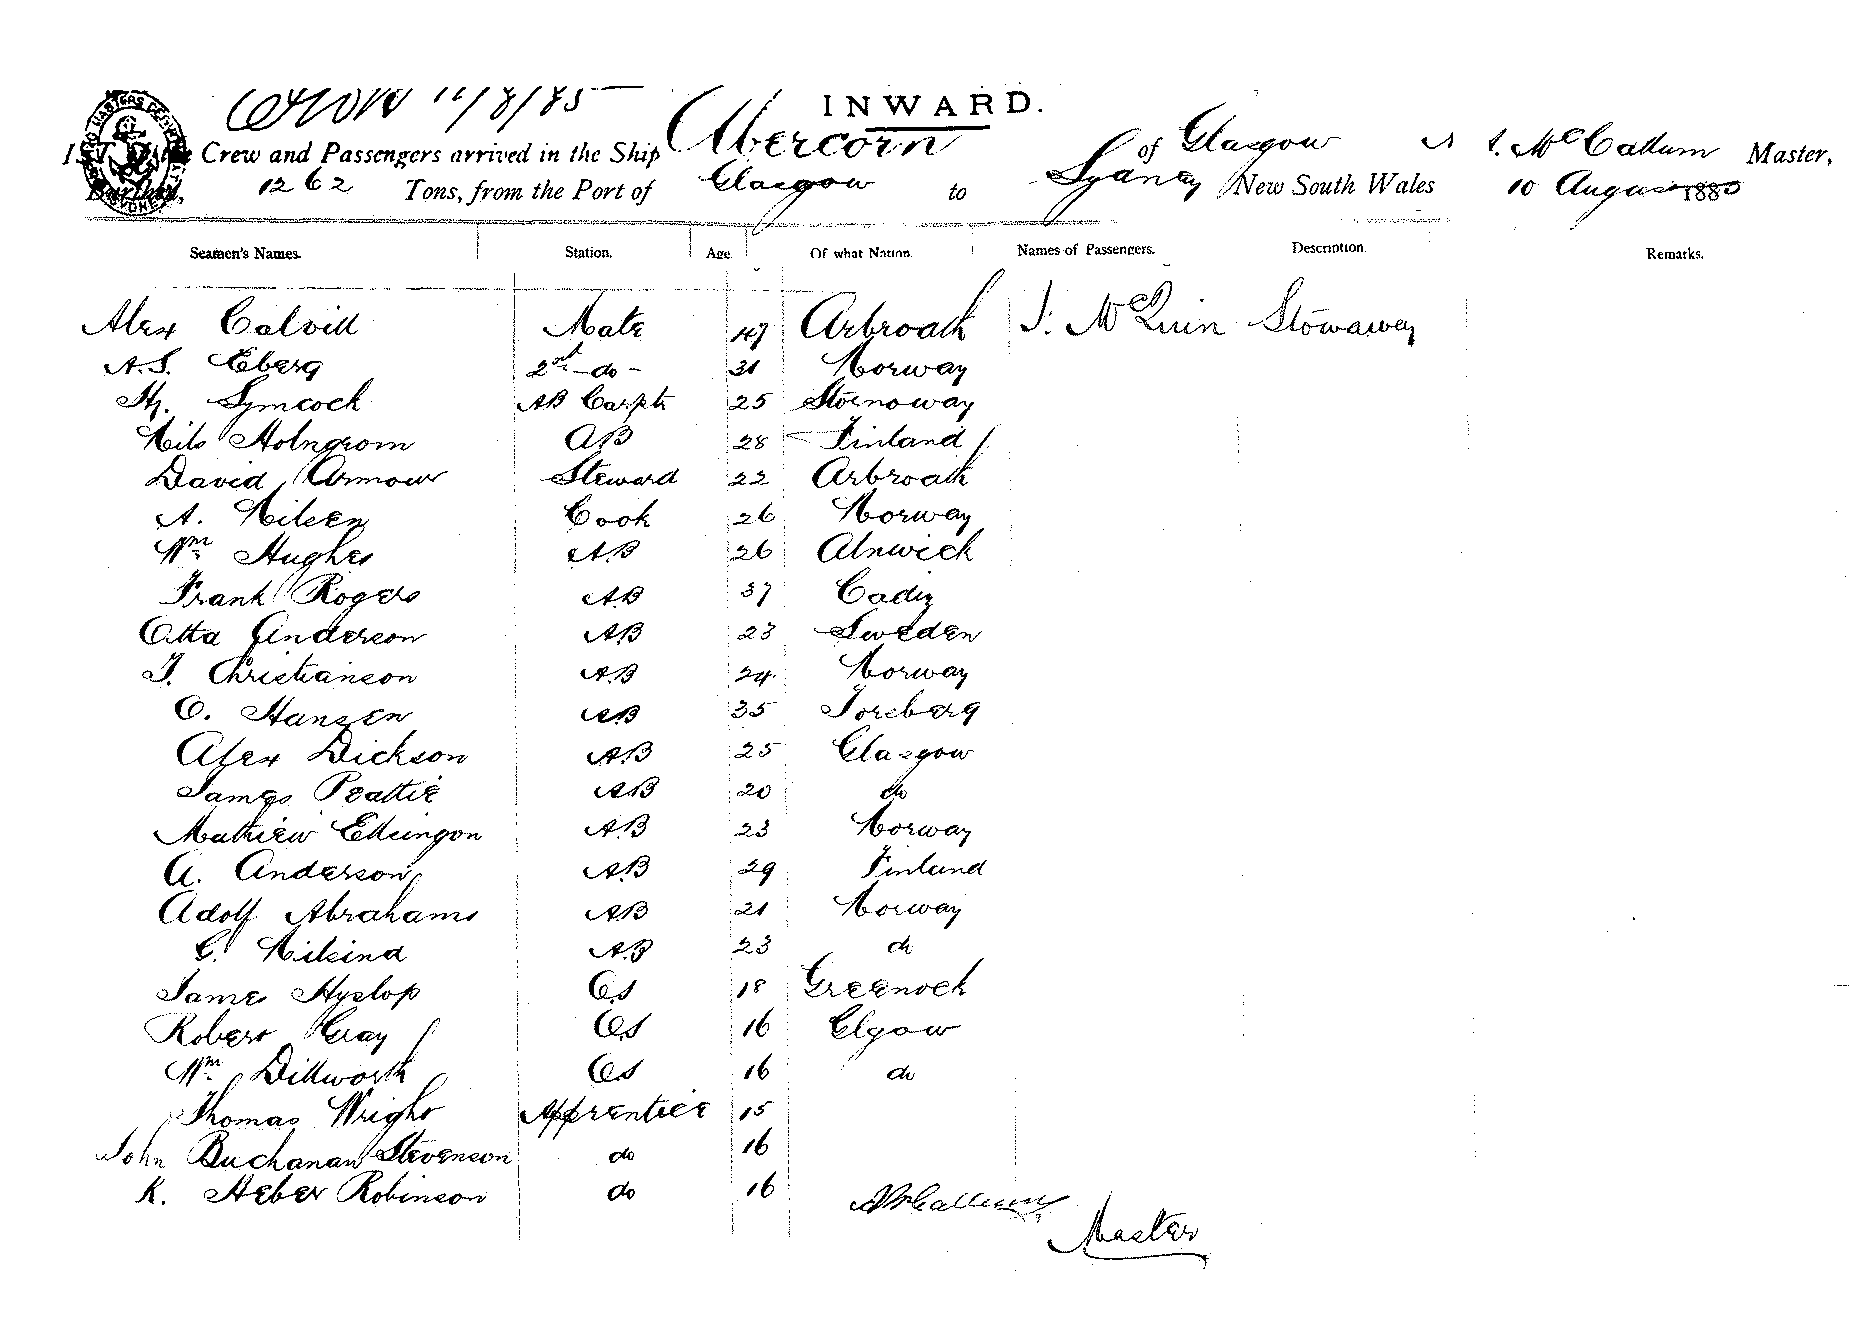 11/8/85
INWARD.
LIST of the Crew and Passengers arrived in the Ship Abercorn of Glasgow McCallum Master,
Burthen, 1262 Tons, from the Port of Glasgow to Sydney New South Wales 10 August 1885
Seamen's Names. Station. Age Of what Nation. Names of Passengers. Description. Remarks.
Alex Calvill Mate 47 Arbroath J. McQuin Stowaway
A.S. Eberg 2nd - do - 31 Norway
Hy. Symcock AB Carptr 25 Stornoway
Nils Holngrom AB 28 Finland
David Armour Steward 22 Arbroath
A. Nilsen Cook 26 Norway
Wm Hughes AB 26 Alnwick
Frank Rogers AB 37 Cadiz
Otta Anderson AB 23 Sweden
J. Christianson AB 24 Norway
O. Hansen AB 35 Toreberg
Alex Dickson AB 25 Glasgow
James Peattie AB 20 do
Mathiew Ellingon AB 23 Norway
A. Anderson AB 29 Finland
Adolf Abrahams AB 21 Norway
C. Nilsind AB 23 do
James Hyslop O.S 18 Greenock
Robert Gray O.S 16 Glgow
Wm Dillworth O.S 16 do
Thomas Wright Apprentice 15
John Buchanan Stevenson do 16
K. Heber Robinson do 16
McCallum
Master